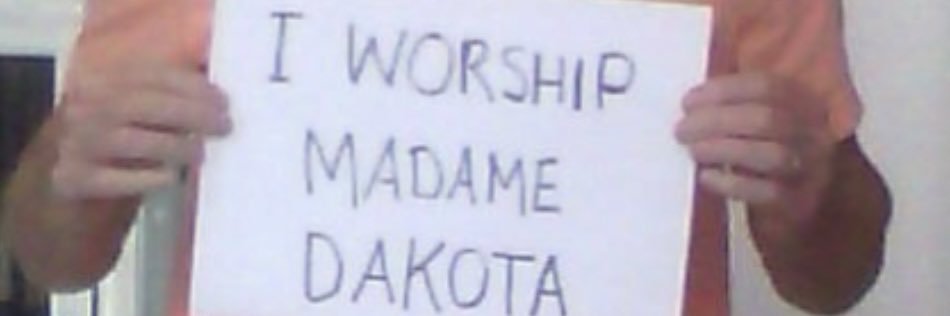 I WORSHIP
MADAME
DAKOTA